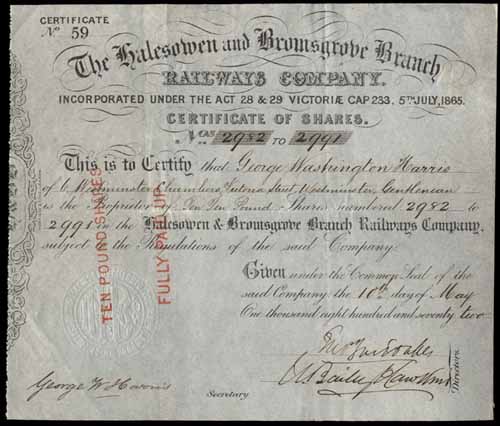 CERTIFICATE
No 59
The Halesowen and Bromsgrove Branch
RAILWAYS COMPANY.
INCORPORATED UNDER THE ACT 28 & 29 VICTORIÆ CAP 233. 5TH JULY, 1865.
CERTIFICATE OF SHARES.
Nos 2982 TO 2991
This is to Certify that George Washington Harris
of 6 Westminster Chambers Victoria Street Westminster, Gentleman
is the Proprietor of Ten Ten Pound Shares numbered 2982 to
2991 in the Halesowen & Bromsgrove Branch Railways Company,
subject to the Regulations of the said Company.
Given under the Common Seal of the
said Company the 10th day of May
One thousand eight hundred and seventy two
TEN POUND SHARES
FULLY PAID UP
Directors
George W Harris
Secretary